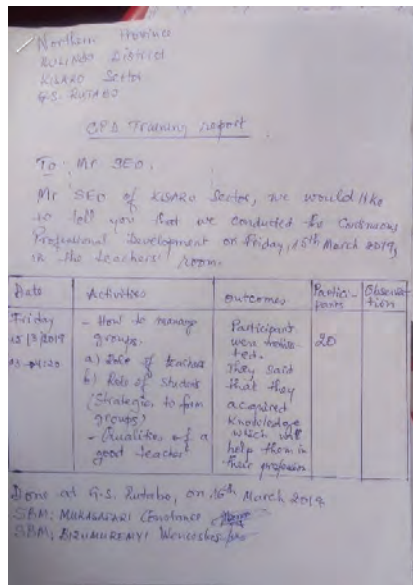 Northern Province
RULINDO District
KISARO Sector
G.S. RUTABO
CPD Training report
To: Mr SEO.
Mr SEO of KISARO Sector, we would like
to tell you that we conducted the Continuous
Professional Development on Friday, 15th March 2019,
in the teachers' room.
Date
Activities
outcomes
Partici-
pants
Observa-
tion
Friday
15/3/2019
- How to manage
groups.
a) Role of teachers
b) Role of student
(Strategies to form
groups)
- Qualities of a
good teacher
Participant
were
They said
that they
acquired
knowledge
which will
help them in
their profession
20
Done at G.S. Rutabo, on 16th March 2019
SBM: MUKASAFARI Constance
SBM: BIZUMUREMYI